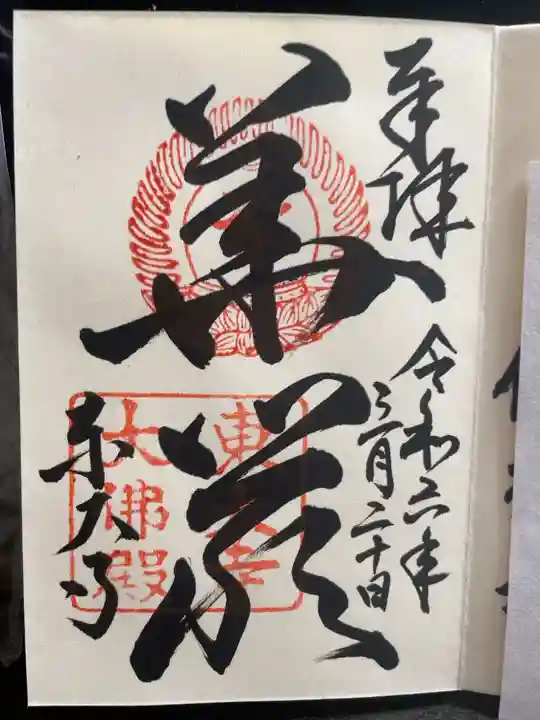 奉拝
令和六年
三月二十日
華嚴
東大寺
東大寺
大佛殿